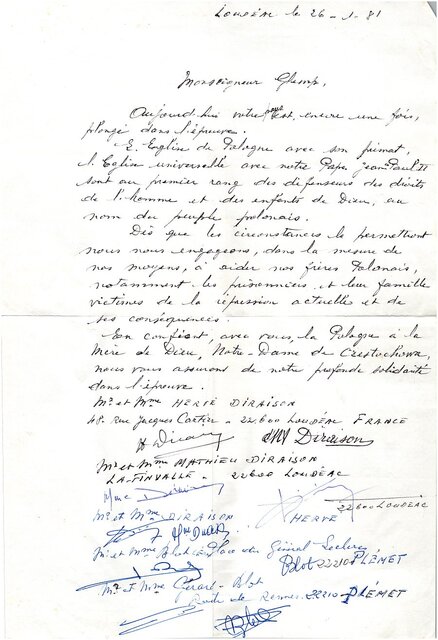 LOUDÉAC le 26-1-81
Monseigneur Glemp,
Aujourd'hui votre pays est, encore une fois,
plongé dans l'épreuve.
L'Eglise de Pologne avec son primat,
l'Eglise universelle avec notre Pape Jean Paul II
sont au premier rang des défenseurs des droits
de l'homme et des enfants de Dieu, au
nom du peuple polonais.
Dès que les circonstances le permettront
nous nous engageons, dans la mesure de
nos moyens, à aider nos frères Polonais,
notamment les prisonniers et leur famille
victimes de la répression actuelle et de
ses conséquences.
En confiant, avec vous, la Pologne à la
Mère de Dieu, Notre-Dame de Czestochowa,
nous vous assurons de notre profonde solidarité
dans l'épreuve.
Mr et Mme HERVÉ DIRAISON
48, rue Jacques Cartier - 22600 LOUDÉAC, FRANCE
Diraison
Mr et Mme MATHIEU DIRAISON
LA-TINVALLE - 22600 LOUDÉAC
Mme
22600 LOUDÉAC
Mr et Mme DIRAISON HERVÉ
Mr et Mme Blot Place du Général Leclerc
Blot 22210 PLÉMET
Mr et Mme Gérard Blot
Route de Rennes 22210 - PLÉMET